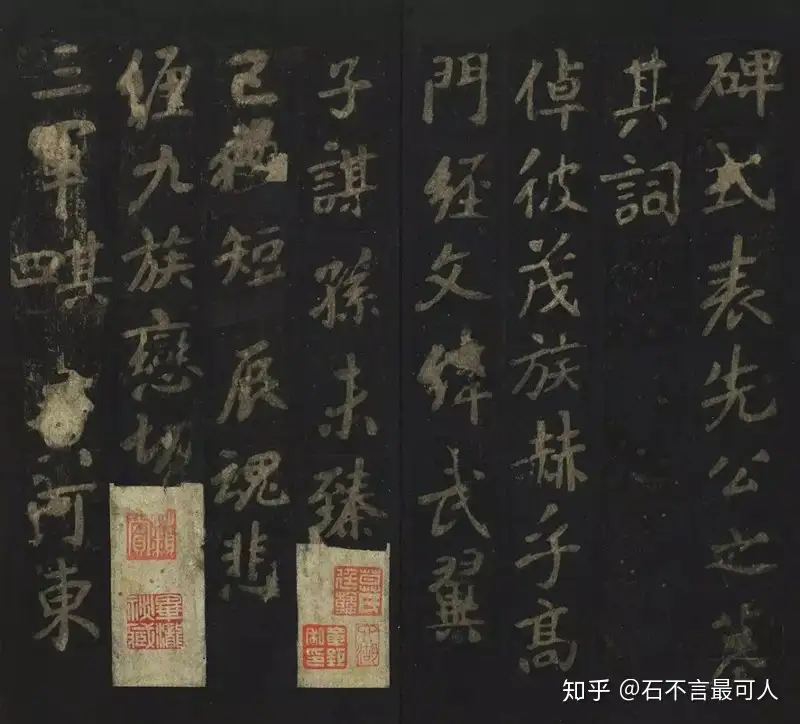 碑式表先公之墓
其詞
倬彼茂族赫乎高
門經文緯武翼
子謀孫未臻
已短辰魂悲
纏九族戀切
三軍其四河東
知乎 @石不言最可人